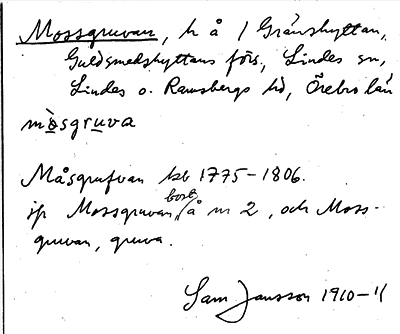 Mossgruvan, h å 1 Gränshyttan,
Guldsmedshyttans förs, Lindes sn,
Lindes o. Ramsbergs hd, Örebro län
mòsgruva
Måsgrufvan kb 1775-1806.
jfr Mossgruvan, bost. å nr 2, och Moss-
gruvan, gruva.
Sam Jansson 1910-11